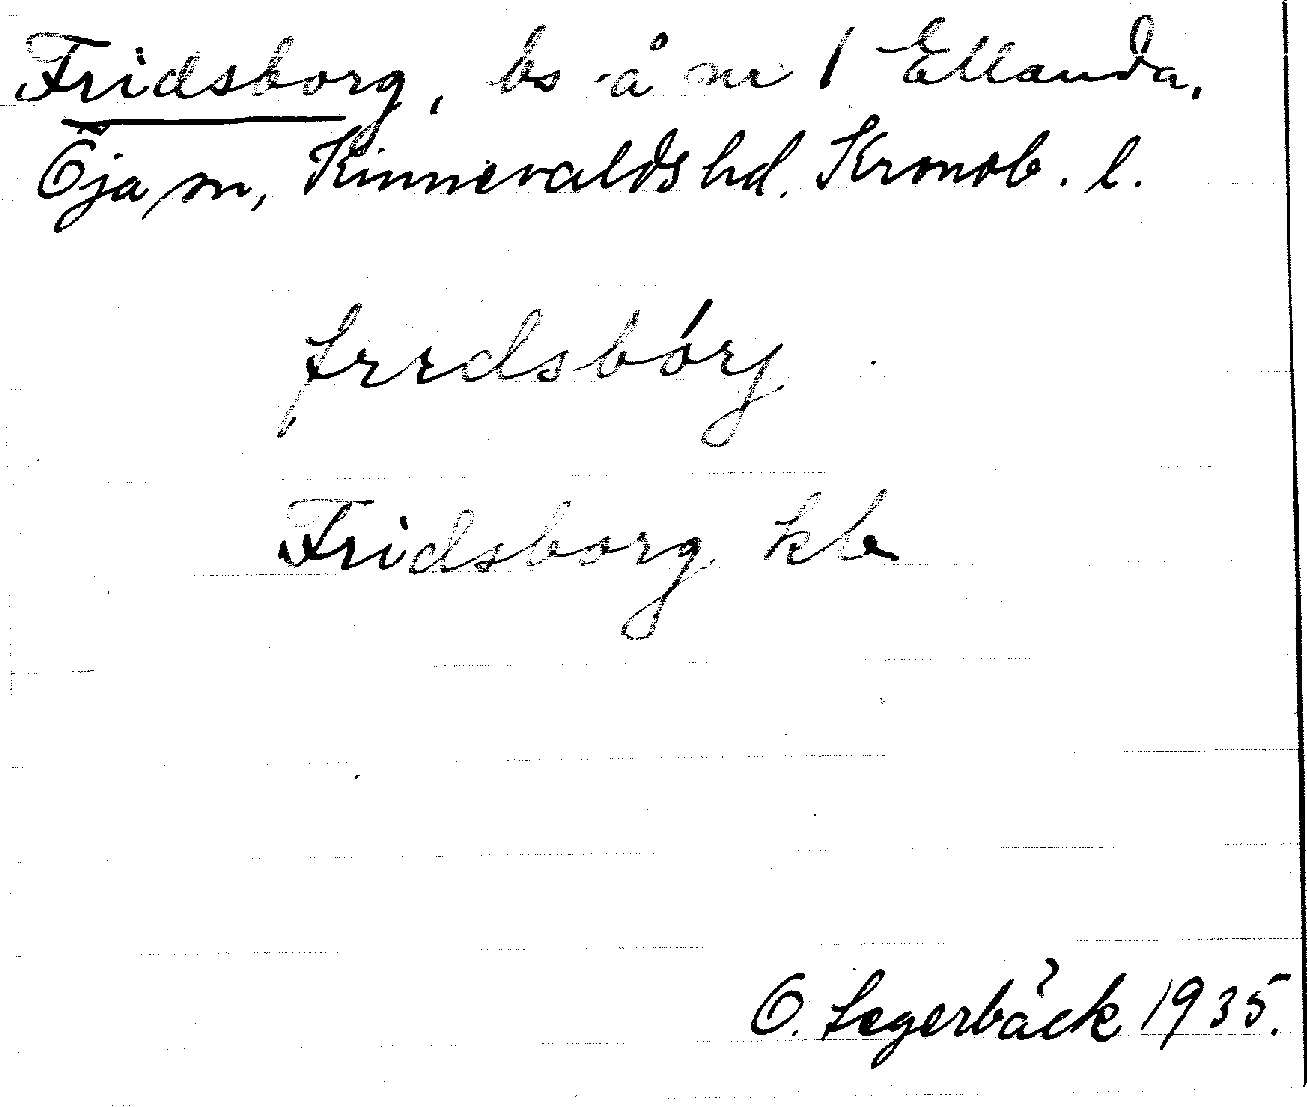 Fridsborg, bs å nr 1 Ellanda,
Öja sn, Kinnevalds hd. Kronob. l.
fredsbórj
Fridsborg kb
O. Lagerbäck 1935.